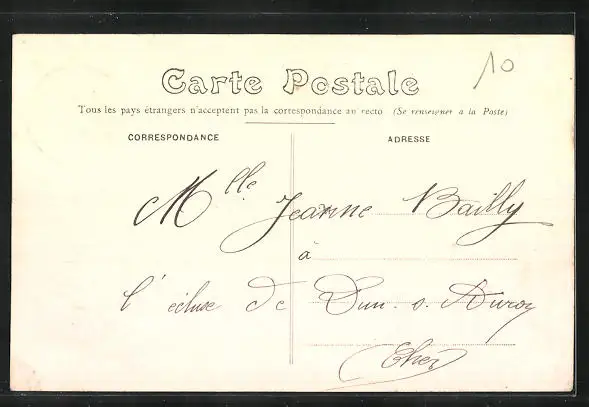 10
Carte Postale
Tous les pays étrangers n'acceptent pas la correspondance au recto (Se renseigner à la Poste)
CORRESPONDANCE
ADRESSE
Mlle Jeanne Bailly
à
l'écluse de Dun. s. Auron
(Cher)